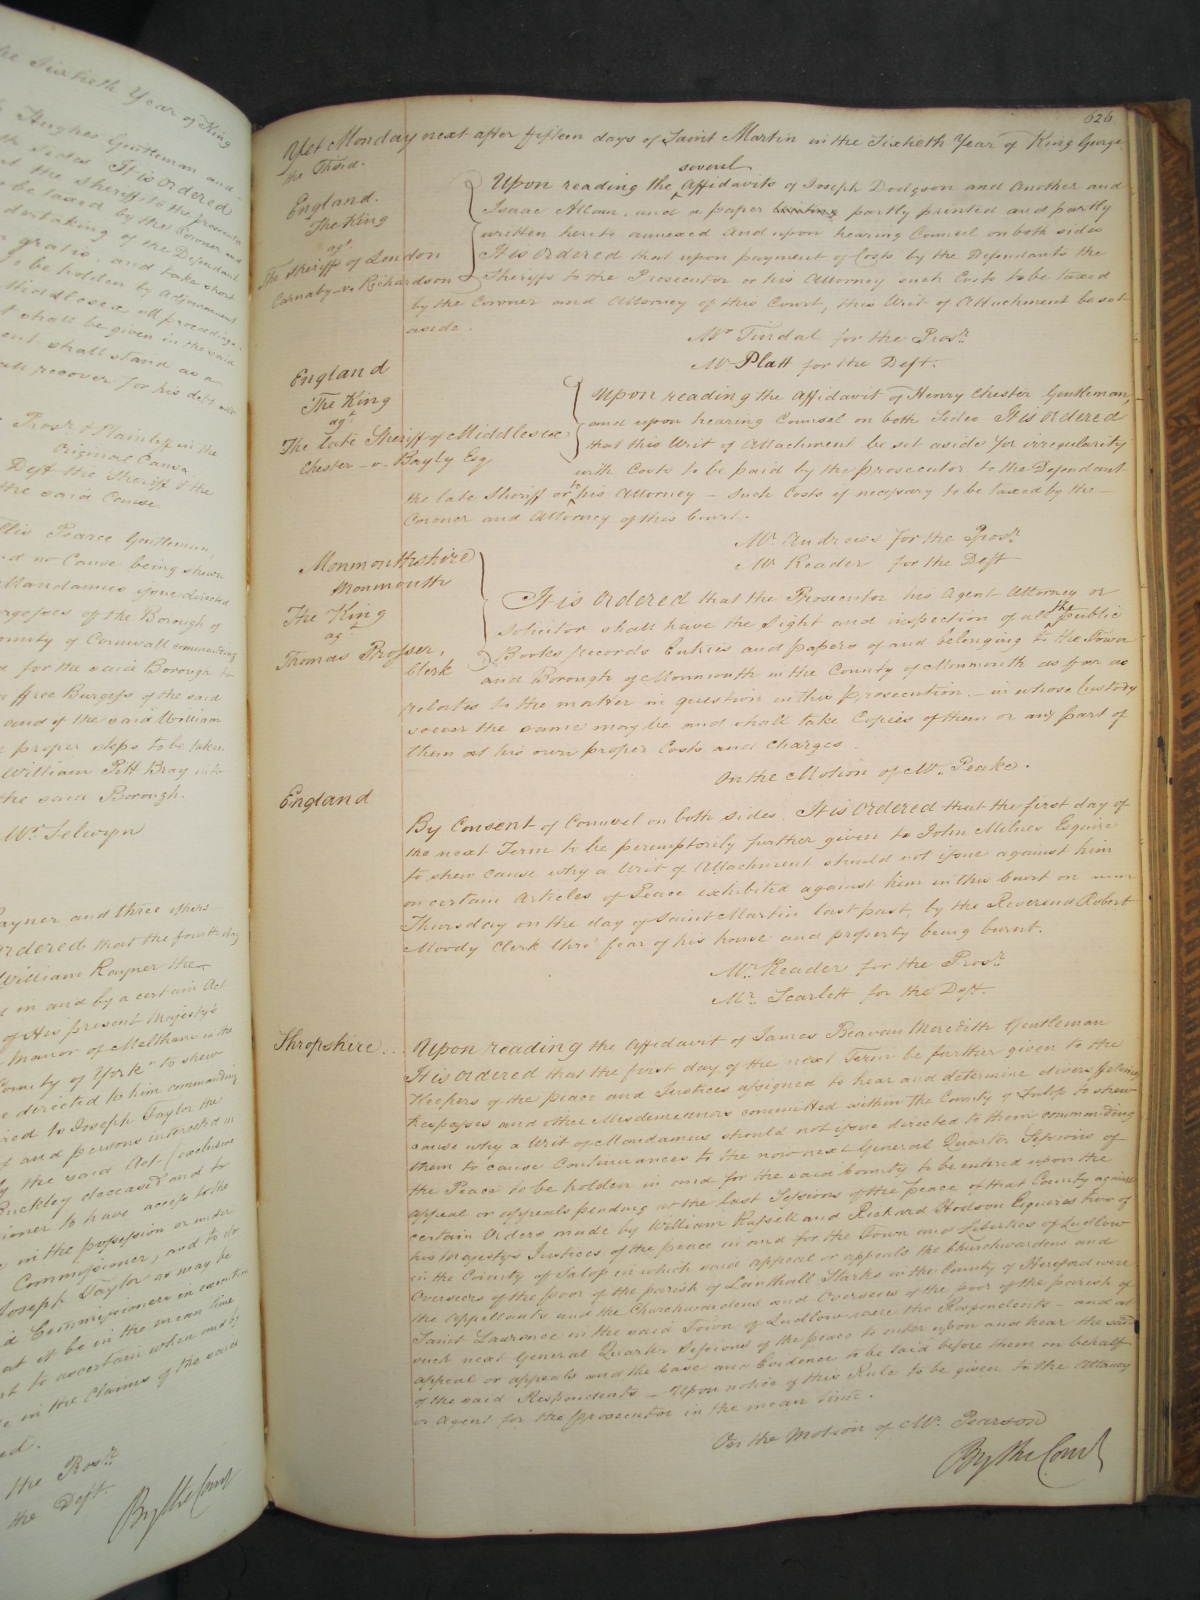 the Sixtieth Year of King
Hughes Gentleman and
sides It is Ordered
the Sheriff to the prosecutor
be taxed by the Coroner and
undertaking of the Defendant
gratis, and take short
to be holden by Adjournment
Middlesex all proceedings
shall be given in the said
shall stand as a
recover for his debt
Prosr & Plaintiff in the
Original Cause
Deft the Sheriff & the
the said Cause
Pearce Gentleman,
and no Cause being shewn
Mandamus issue directed
Burgesses of the Borough of
County of Cornwall commanding
for the said Borough
a free Burgess of the said
and of the said William
proper steps to be taken
William Pitt Bray into
the said Borough.
Mr. Selwyn
Rayner and three others
Ordered that the fourth day
William Rayner the
in and by a certain Act
of His present Majesty's
Manor of Meltham in the
County of York to shew
directed to him commanding
to Joseph Taylor the
and persons interested in
the said Act (exclusive
Buckley deceased and to
to have access to the
in the possession or under
Commissioner, and to
Joseph Taylor as may be
Commissioners in execution
at it be in the mean time
to ascertain when and by
in the Claims of the said
the Prosr.
the Deft.
By the Court
626
Yet Monday next after fifteen days of Saint Martin in the Sixtieth Year of King George
the Third.
England.
The King
agt.
The Sheriffs of London
Carnaby v. Richardson
several
Upon reading the Affidavits of Joseph Dodgson and Another and
Isaac Allan, and a paper writing partly printed and partly
written hereto annexed and upon hearing Counsel on both sides
It is Ordered that upon payment of Costs by the Defendants the
Sheriffs to the Prosecutor or his Attorney such Costs to be taxed
by the Coroner and Attorney of this Court, this Writ of Attachment be set
aside.
Mr Tindal for the Prosr.
Mr Platt for the Deft.
England
The King
agt
The late Sheriff of Middlesex
Chester v. Bayly Esq
Upon reading the Affidavit of Henry Chester Gentleman,
and upon hearing Counsel on both Sides It is Ordered
that this Writ of Attachment be set aside for irregularity
with Costs to be paid by the prosecutor to the Defendant
the late Sheriff or to his Attorney – such Costs if necessary to be taxed by the
Coroner and Attorney of this Court.
Mr. Andrews for the Prosr.
Mr Reader for the Deft
Monmouthshire
Monmouth
The King
agt
Thomas Prosser,
Clerk
It is Ordered that the Prosecutor his Agent Attorney or
Solicitor shall have the sight and inspection of all the Public
Books records Entries and papers of and belonging to the Town
and Borough of Monmouth in the County of Monmouth as far as
relates to the matter in question in this prosecution – in whose Custody
soever the same may be and shall take Copies of them or any part of
them at his own proper Costs and Charges.
On the Motion of Mr. Peake.
England
By Consent of Counsel on both sides. It is Ordered that the first day of
the next Term to be peremptorily further given to John Milnes Esquire
to shew cause why a Writ of Attachment should not issue against him
on certain Articles of Peace exhibited against him in this Court on
Thursday on the day of Saint Martin last past, by the Reverend Robert
Moody Clerk thro' fear of his house and property being burnt.
Mr. Reader for the Prosr.
Mr. Scarlett for the Deft.
Shropshire
Upon reading the Affidavit of James Beavan Meredith Gentleman
It is Ordered that the first day of the next Term be further given to the
Keepers of the peace and Justices assigned to hear and determine divers felonies
trespasses and other Misdemeanors committed within the County of Salop to shew
cause why a Writ of Mandamus should not issue directed to them commanding
them to cause Continuances to the now next General Quarter Sessions of
the Peace to be holden in and for the said County to be entered upon the
appeal or appeals pending at the last Sessions of the peace of that County against
certain Orders made by William Russell and Richard Hodson Esquires two of
his Majesty's Justices of the peace in and for the Town and Liberties of Ludlow
in the County of Salop in which said appeal or appeals the Churchwardens and
Overseers of the poor of the parish of Lainthall Starks in the County of Hereford were
the Appellants and the Churchwardens and Overseers of the poor of the parish of
Saint Lawrence in the said Town of Ludlow were the Respondents – and at
such next General Quarter Sessions of the peace to enter upon and hear the said
appeal or appeals and the Case and Evidence to be laid before them on behalf
of the said Respondents – Upon notice of this Rule to be given to the Attorney
or Agent for the prosecutor in the mean time.
On the Motion of Mr. Pearson
By the Court